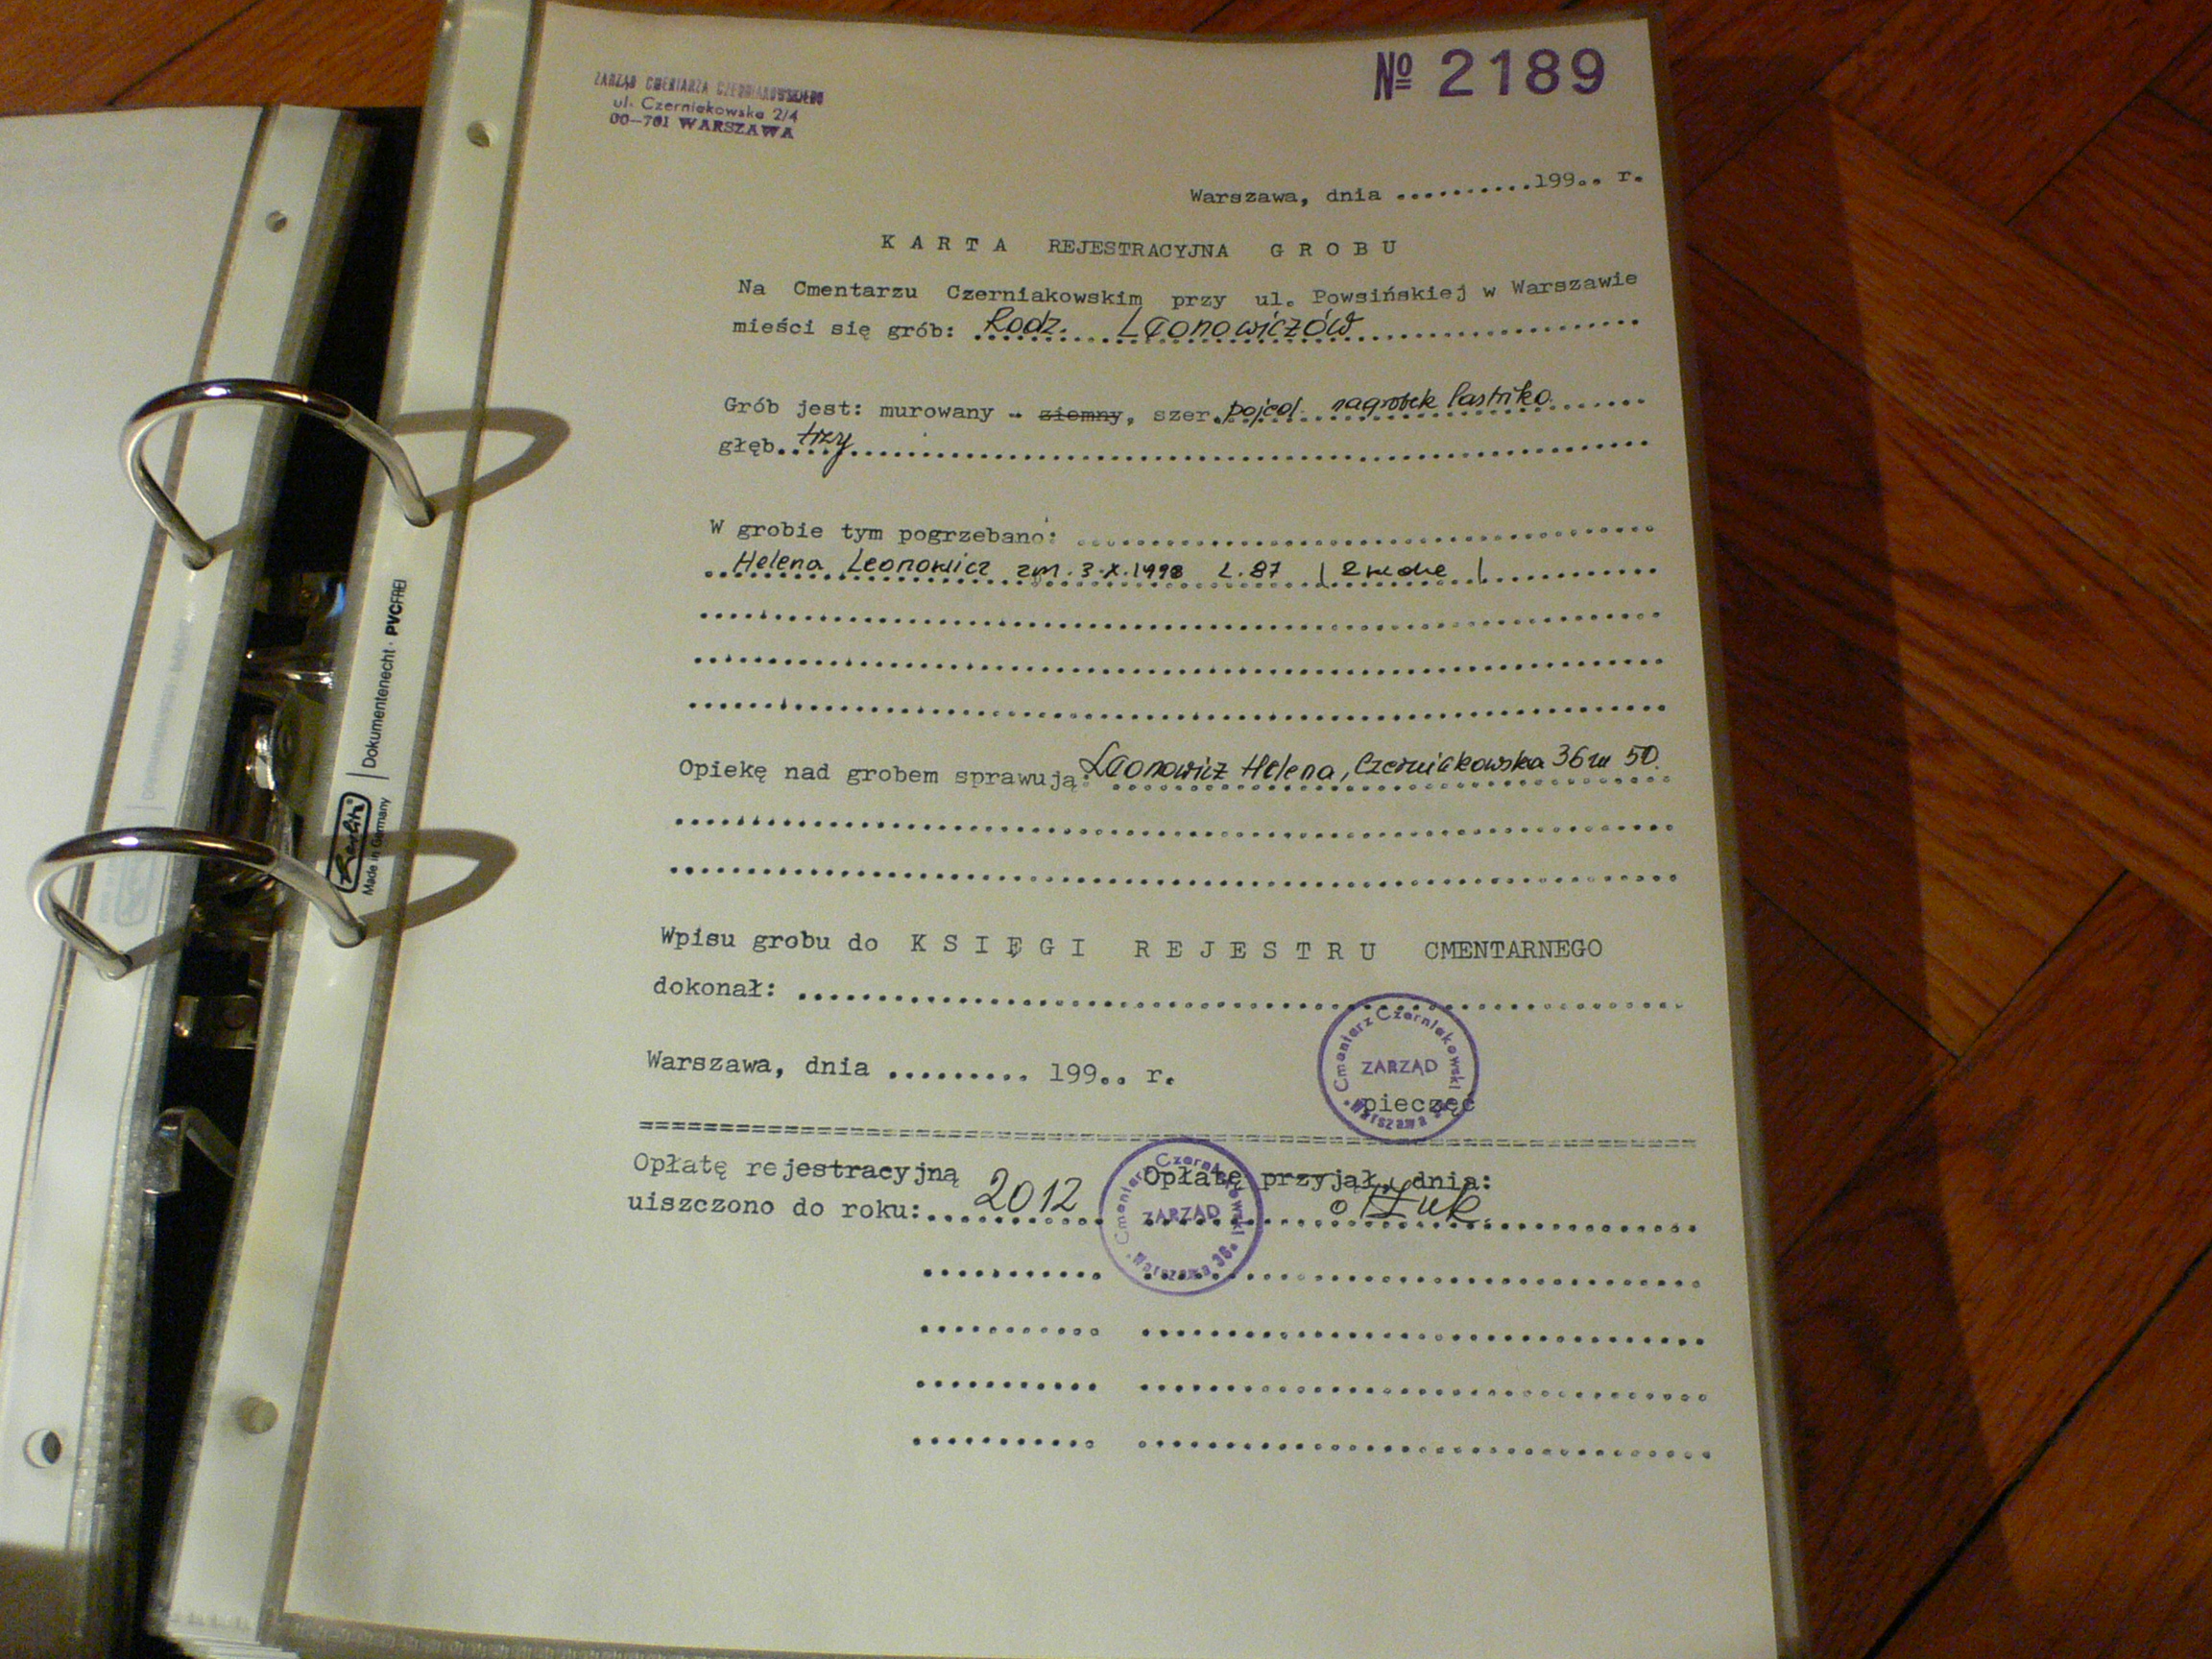 ZARZĄD CMENTARZA CZERNIAKOWSKIEGO
ul. Czerniakowska 2/4
00-701 WARSZAWA
№ 2189
Warszawa, dnia ...........199.. r.
K A R T A REJESTRACYJNA G R O B U
Na Cmentarzu Czerniakowskim przy ul. Powsińskiej w Warszawie
mieści się grób: Rodz. Leonowiczów
Grób jest: murowany - ziemny, szer. pojed. nagrobek lastriko
głęb. trzy
W grobie tym pogrzebano:
Helena Leonowicz zm. 3.X.1998 L. 87
Opiekę nad grobem sprawują: Leonowicz Helena, Czerniakowska 36 m 50.
Wpisu grobu do K S I Ę G I R E J E S T R U CMENTARNEGO
dokonał:
Warszawa, dnia ......... 199.. r.
Cmentarz Czerniakowski
ZARZĄD
Warszawa
pieczęć
Opłatę rejestracyjną Opłatę przyjął, dnia:
uiszczono do roku: 2012
Cmentarz Czerniakowski
ZARZĄD
Warszawa 36
Dokumentenecht · PVCFREI
Herlitz
Made in Germany